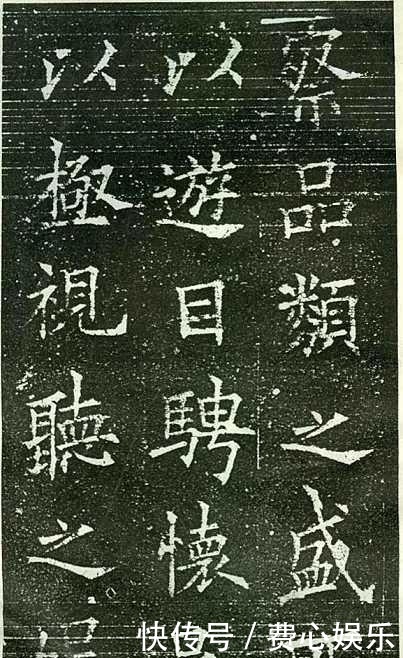 察品類之盛
以遊目騁懷
以極視聽之
快传号 / 费心娱乐